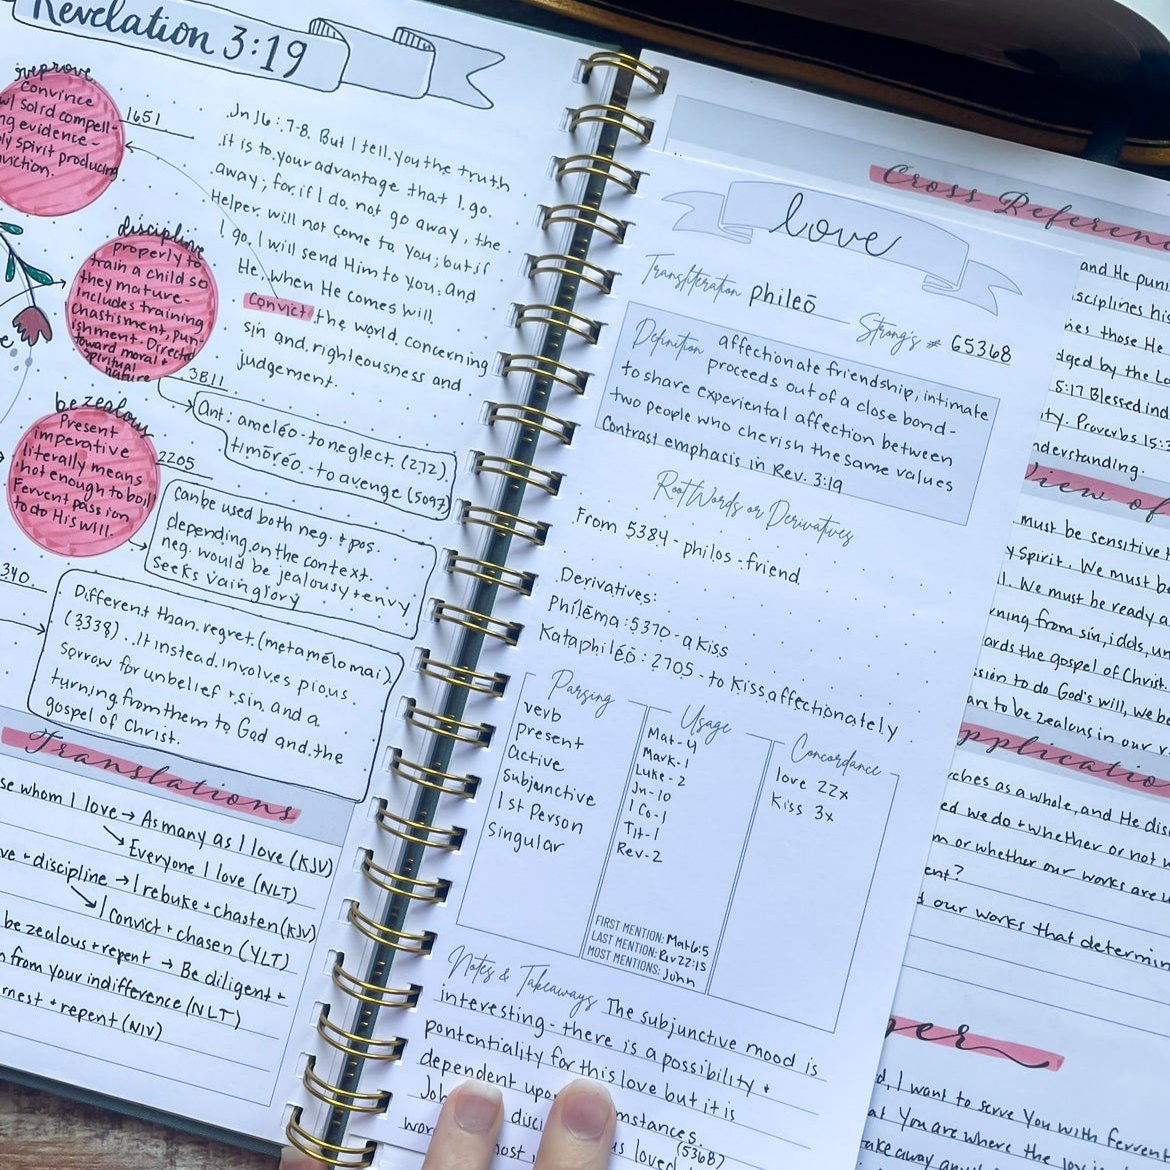 Revelation 3:19
improve
Convince
w/ solid compell-
ng evidence-
ly spirit producing
nviction.
1651
Jn 16:7-8. But I tell you the truth
it is to your advantage that I go
away; for if I do not go away, the
Helper will not come to you; but if
I go, I will send Him to you. And
He, when He comes will
Convict the world concerning
sin and righteousness and
judgement.
discipline
properly to
train a child so
they mature-
includes training
chastisment, pun-
ishment. Directed
toward moral +
spiritual
nature
3811
Ant: ameléo-to neglect. (272).
timōréo.-to avenge (5097)
be zealous
Present
imperative
literally means
"hot enough to boil
Fervent passion
to do His will.
2205
can be used both neg. + pos.
depending on the context.
neg. would be jealousy + envy
seeks vain glory
340.
Different than regret (metamélomai)
(3338). It instead involves pious
sorrow for unbelief + sin and a
turning from them to God and the
gospel of Christ.
Translations
se whom I love → As many as I love (KJV)
Everyone I love (NLT)
ve + discipline → I rebuke + chasten (KJV)
I convict + chasen (YLT)
be zealous + repent → Be diligent +
n from your indifference (NLT)
rnest + repent (NIV)
love
Transliteration phileō
Strong's # G5368
Definition affectionate friendship, intimate
proceeds out of a close bond-
to share experiental affection between
two people who cherish the same values
Contrast emphasis in Rev. 3:19
Root Words or Derivatives
From 5384-philos-friend
Derivatives:
Philēma:5370-a kiss
Kataphiléō:2705-to kiss affectionately
Parsing
verb
Present
Active
Subjunctive
1st Person
Singular
Usage
Mat-4
Mark-1
Luke-2
Jn-10
1 Co-1
Tit-1
Rev-2
FIRST MENTION: Mat 6:5
LAST MENTION: Rev 22:15
MOST MENTIONS: John
Concordance
love 22x
Kiss 3x
Notes & Takeaways The subjunctive mood is
interesting-there is a possibility +
pontentiality for this love but it is
dependent upon mstances.
Joh disci s loved (5368)
wor most
Cross Referen
and He puni
sciplines his
nes those He
dged by the Lo
5:17 Blessed ind
ty. Proverbs 15:3
nderstanding.
View of
must be sensitive t
y Spirit. We must be
l. We must be ready a
ning from sin, idols, un
ards the gospel of Christ.
sion to do God's will, we be
are to be zealous in our r
pplicatio
rches as a whole, and He dis
ed we do + whether or not w
m or whether our works are w
ent?
d our works that determin
yer
d, I want to serve You with ferven
at You are where the lov
ake away any